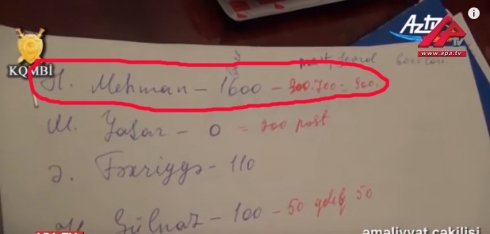 Aztv
APA TV
www.apa.tv
KQMBİ
H. Mehman - 1600 - 300.700 = 500.
M. Yaşar - 0 = 200 post
Ə. Fəxriyyə - 110
Gülnaz - 100 - 50 gəlib 50
APA TV
əməliyyat çəkilişi